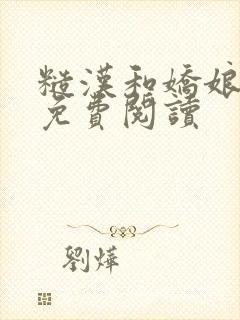 糙漢和嬌娘
免費閱讀
劉燁